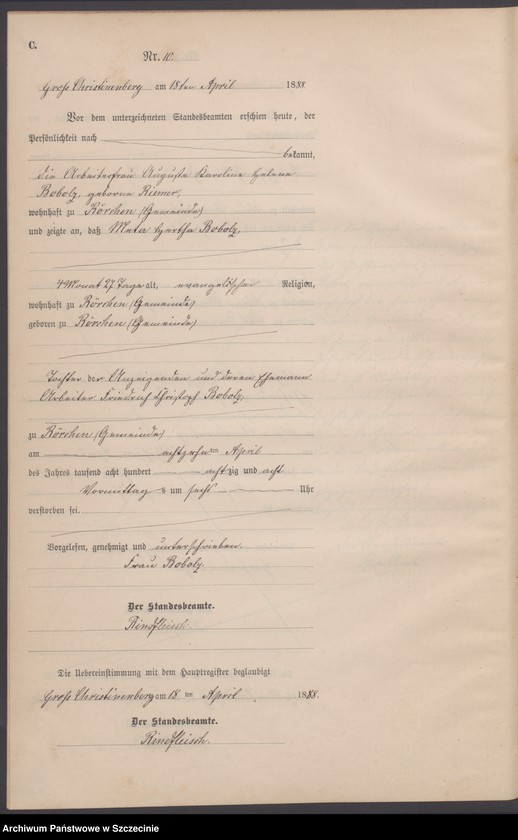 C.
Nr. 10.
Groß Christinenberg am 18ten April 1888.
Vor dem unterzeichneten Standesbeamten erschien heute, der
Persönlichkeit nach
bekannt,
die Arbeiterfrau Auguste Karoline Helene
Bobolz, geborne Riemer,
wohnhaft zu Rörchen (Gemeinde)
und zeigte an, daß Meta Hertha Bobolz,
4 Monat 27 Tage alt, evangelischer Religion,
wohnhaft zu Rörchen (Gemeinde)
geboren zu Rörchen (Gemeinde)
Tochter der Anzeigenden und deren Ehemann
Arbeiter Friedrich Christoph Bobolz,
zu Rörchen (Gemeinde)
am achtzehnten April
des Jahres tausend acht hundert achtzig und acht
Vormittags um sechs Uhr
verstorben sei.
Vorgelesen, genehmigt und unterschrieben.
Frau Bobolz.
Der Standesbeamte.
Rindfleisch.
Die Uebereinstimmung mit dem Hauptregister beglaubigt
Groß Christinenberg am 18ten April 1888.
Der Standesbeamte.
Rindfleisch.
Archiwum Państwowe w Szczecinie